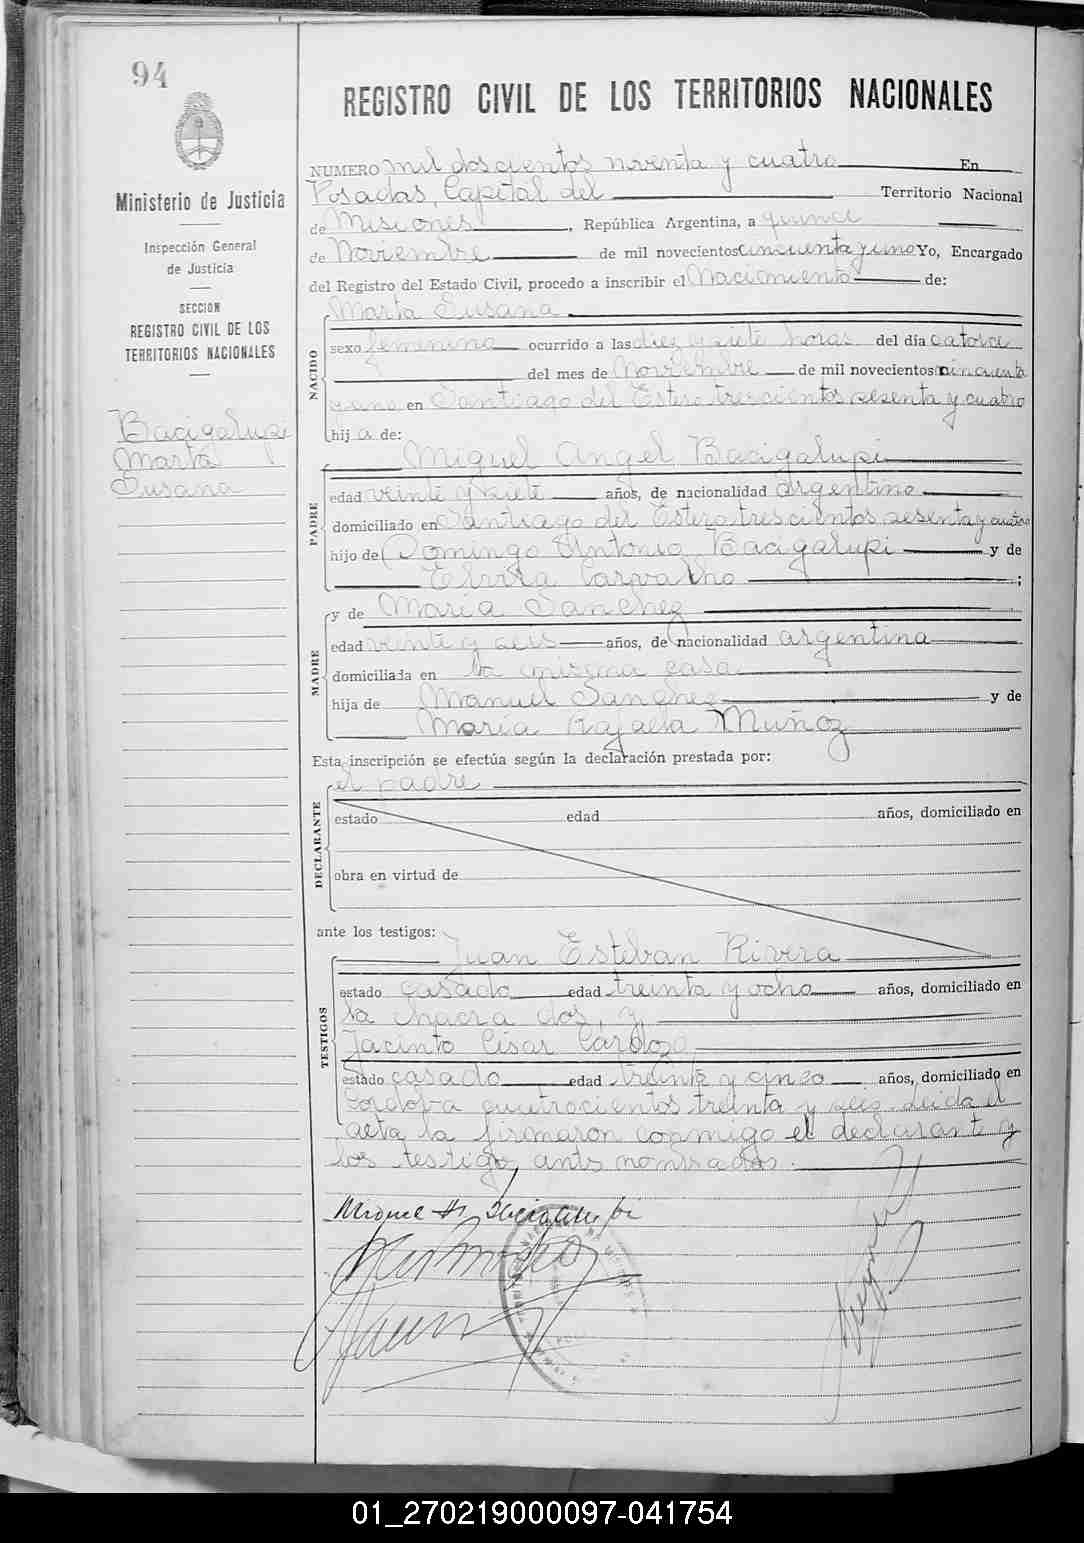 94
REGISTRO CIVIL DE LOS TERRITORIOS NACIONALES
Ministerio de Justicia
Inspección General
de Justicia
SECCION
REGISTRO CIVIL DE LOS
TERRITORIOS NACIONALES
Bacigalupi
Marta
Susana
NUMERO mil doscientos noventa y cuatro En
Posadas, Capital del Territorio Nacional
de Misiones, República Argentina, a quince
de Noviembre de mil novecientos cincuenta y uno Yo, Encargado
del Registro del Estado Civil, procedo a inscribir el Nacimiento de:
NACIDO
Marta Susana
sexo femenino ocurrido a las diez y siete horas del día catorce
del mes de Noviembre de mil novecientos cincuenta
y uno en Santiago del Estero trescientos sesenta y cuatro
hij a de:
PADRE
Miguel Angel Bacigalupi
edad veinte y siete años, de nacionalidad argentino
domiciliado en Santiago del Estero trescientos sesenta y cuatro
hijo de Domingo Antonio Bacigalupi y de
Elvira Carvalho ;
MADRE
y de María Sanchez
edad veinte y seis años, de nacionalidad argentina
domiciliada en la misma casa
hija de Manuel Sanchez y de
María Rafaela Muñoz
Esta inscripción se efectúa según la declaración prestada por:
DECLARANTE
el padre
estado edad años, domiciliado en
obra en virtud de
ante los testigos:
TESTIGOS
Juan Esteban Rivera
estado casado edad treinta y ocho años, domiciliado en
la chacra dos, y
Jacinto César Cardozo
estado casado edad treinta y cinco años, domiciliado en
Córdoba cuatrocientos treinta y seis leida el
acta la firmaron conmigo el declarante y
los testigos ants nombrados.
Miguel A. Bacigalupi
01_270219000097-041754